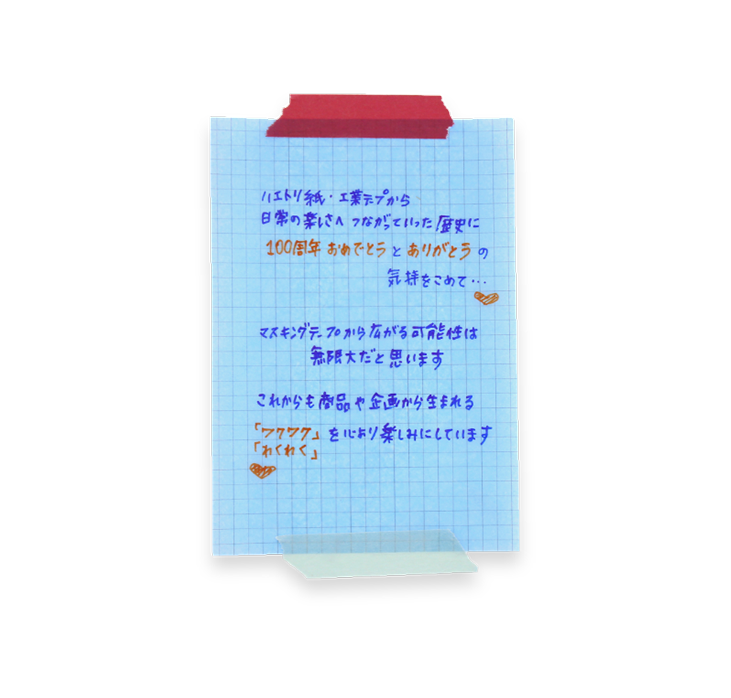 ハエトリ紙・工業テープから
日常の楽しさへ つながっていった歴史に
100周年 おめでとう と ありがとう の
気持をこめて…
マスキングテープから広がる可能性は
無限大だと思います
これからも商品や企画から生まれる
「ワクワク」を心より楽しみにしています
「わくわく」